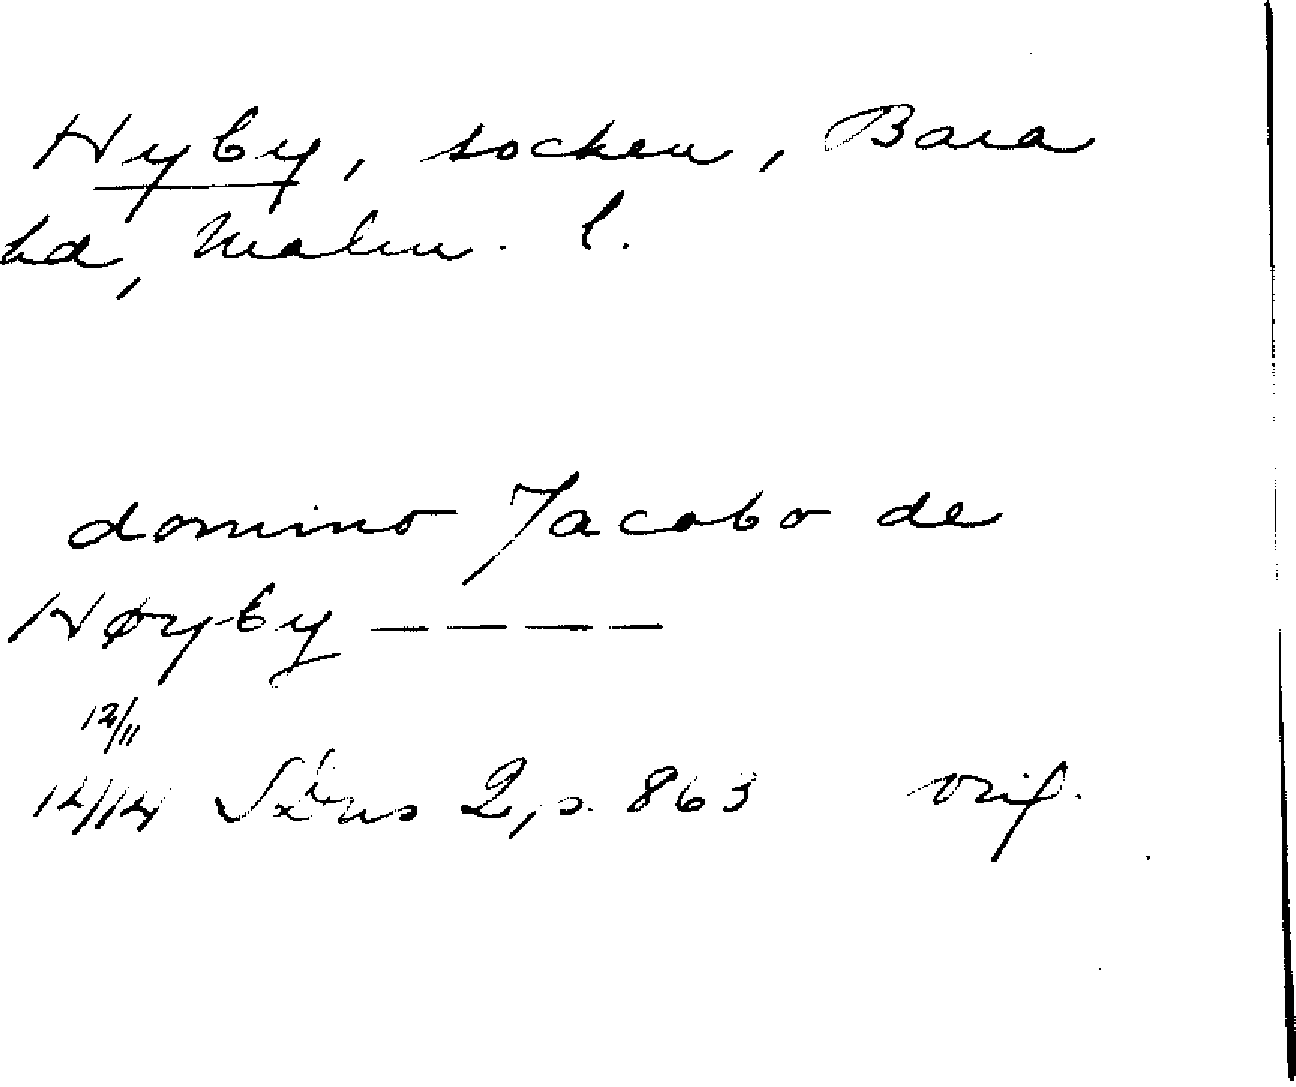 Hyby, socken, Bara
hd, Malm. l.
domino Jacobo de
Høyby ----
12/11
1414 SDns 2, s. 863 orig.